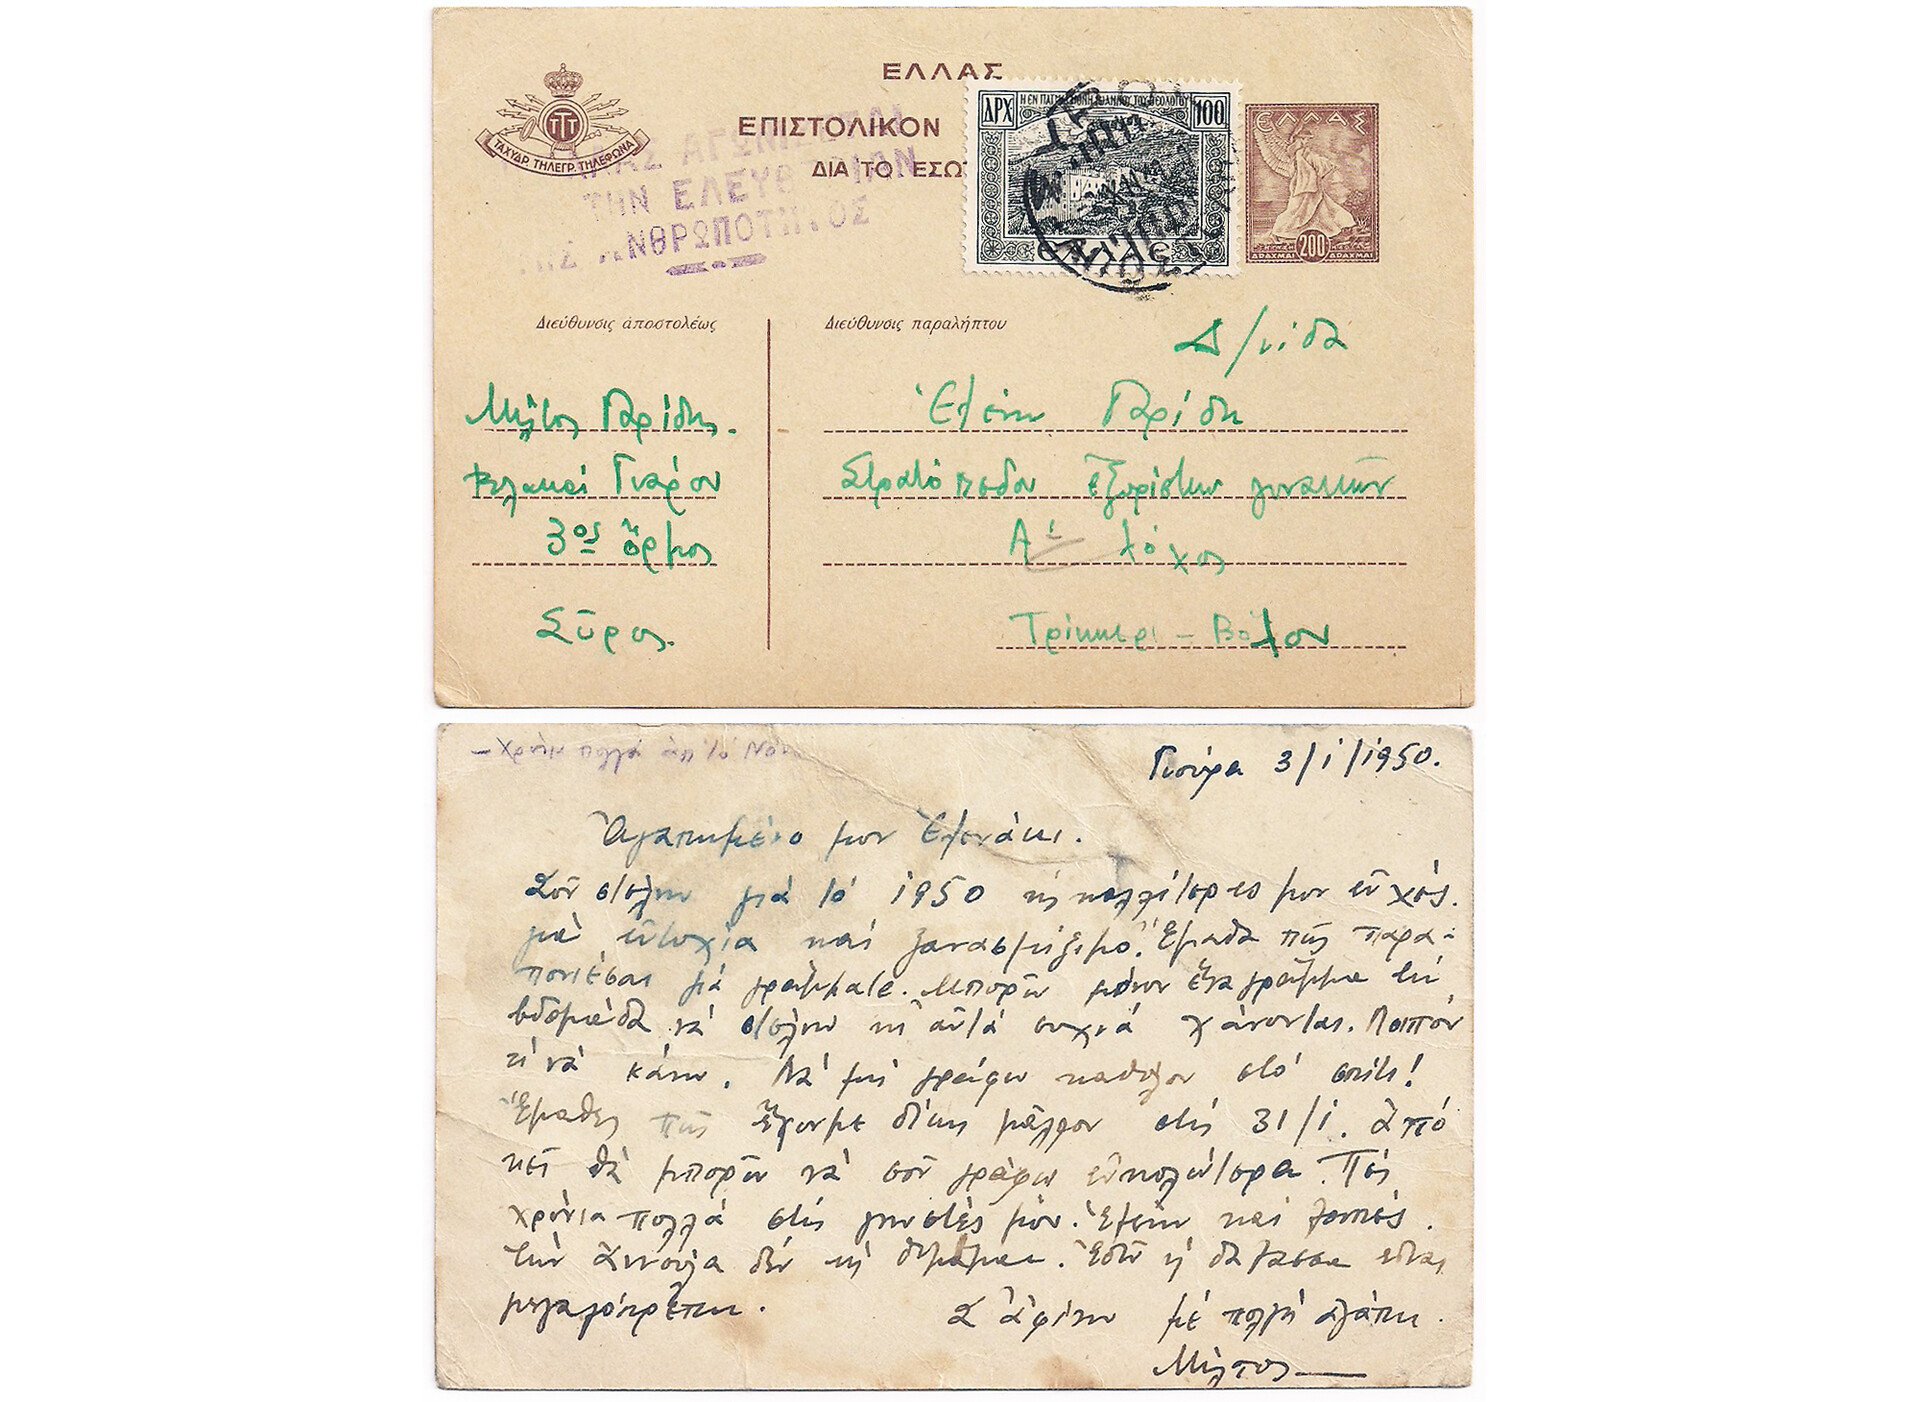 ΕΛΛΑΣ
ΕΠΙΣΤΟΛΙΚΟΝ
ΔΙΑ ΤΟ ΕΣΩ
ΤΤΤ
ΤΑΧΥΔΡ. ΤΗΛΕΓΡ. ΤΗΛΕΦΩΝΑ
ΑΓΩΝΙΖΕΤΑΙ
ΤΗΝ ΕΛΕΥΘΕΡΙΑΝ
ΤΗΣ ΑΝΘΡΩΠΟΤΗΤΟΣ
ΔΡΧ Η ΕΝ ΠΑΤΜΩ ΜΟΝΗ ΙΩΑΝΝΟΥ ΤΟΥ ΘΕΟΛΟΓΟΥ 100
ΕΛΛΑΣ
200
ΔΡΑΧΜΑΙ ΔΡΑΧΜΑΙ
Διεύθυνσις ἀποστολέως
Μίλτος Γαρίδης.
Φυλακαί Γιάρου
3ος ὅρμος
Σῦρος.
Διεύθυνσις παραλήπτου
Δ/νίδα
Ἑλένη Γαρίδη
Στρατόπεδον ἐξορίστων γυναικῶν
Α' λόχος
Τρίκκερι - Βόλου
- Χρόνια πολλά ἀπ' τό
Γιούρα 3/1/1950.
Ἀγαπημένο μου Ἑλενάκι.
Σοῦ στέλνω γιά τό 1950 τίς καλλίτερες μου εὐχές.
γιά εὐτυχία καί ξανασμίξιμο. Ἔμαθα πώς παρα-
πονιέσαι γιά γράμματα. Μπορῶ μόνον ἕνα γράμμα τή
βδομάδα νά στέλνω κι αὐτά συχνά χάνονται. Λοιπόν
τί νά κάνω. Νά μή γράφω καθόλου στό σπίτι!
Ἔμαθες πώς ἔχουμε δίκη μᾶλλον στίς 31/1. Ἀπό
κεῖ θά μπορῶ νά σοῦ γράφω εὐκολώτερα. Πές
χρόνια πολλά στίς γνωστές μου. Ἑλένη καί λοιπές.
Τήν Ἀννούλα δέν τή θυμᾶμαι. Ἐδῶ ἡ θάλασσα εἶναι
μεγαλόπρεπη.
Σ' ἀφίνω μέ πολλή ἀγάπη.
Μίλτος